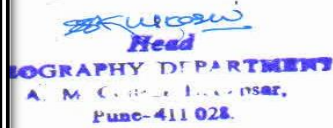 Head
OGRAPHY DEPARTMENT
A. M. psar,
Pune-411 028.